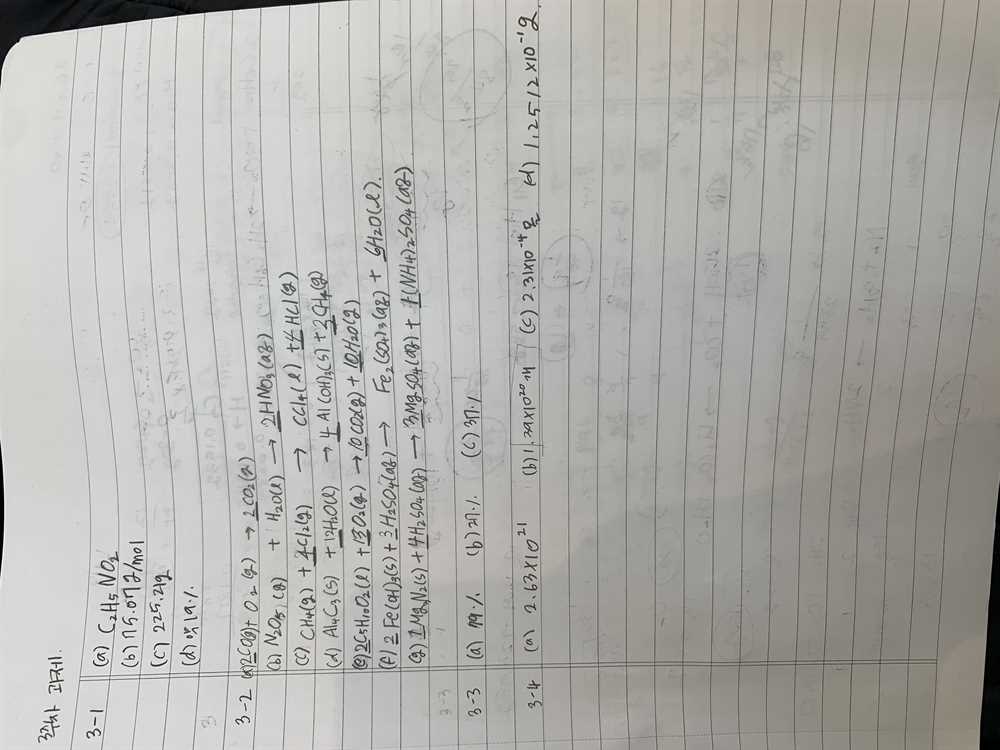 3주차 과제.
3-1 (a) C2H5NO2
(b) 75.07g/mol
(c) 225.21g
(d) 약 19.%
3-2 (a) 2CO(g) + O2(g) → 2CO2(g)
(b) N2O5(g) + H2O(l) → 2HNO3(aq)
(c) CH4(g) + 4Cl2(g) → CCl4(l) + 4HCl(g)
(d) Al4C3(s) + 12H2O(l) → 4Al(OH)3(s) + 3CH4(g)
(e) 2C5H10O2(l) + 13O2(g) → 10CO2(g) + 10H2O(g)
(f) 2Fe(OH)3(s) + 3H2SO4(aq) → Fe2(SO4)3(aq) + 6H2O(l).
(g) 1Mg3N2(s) + 4H2SO4(aq) → 3MgSO4(aq) + 1(NH4)2SO4(aq)
3-3 (a) 79.% (b) 27.% (c) 37.%
3-4 (a) 2.63×10^21 (b) 1.39×10^20개 (c) 2.31×10^-4몰 (d) 1.2512×10^-1g